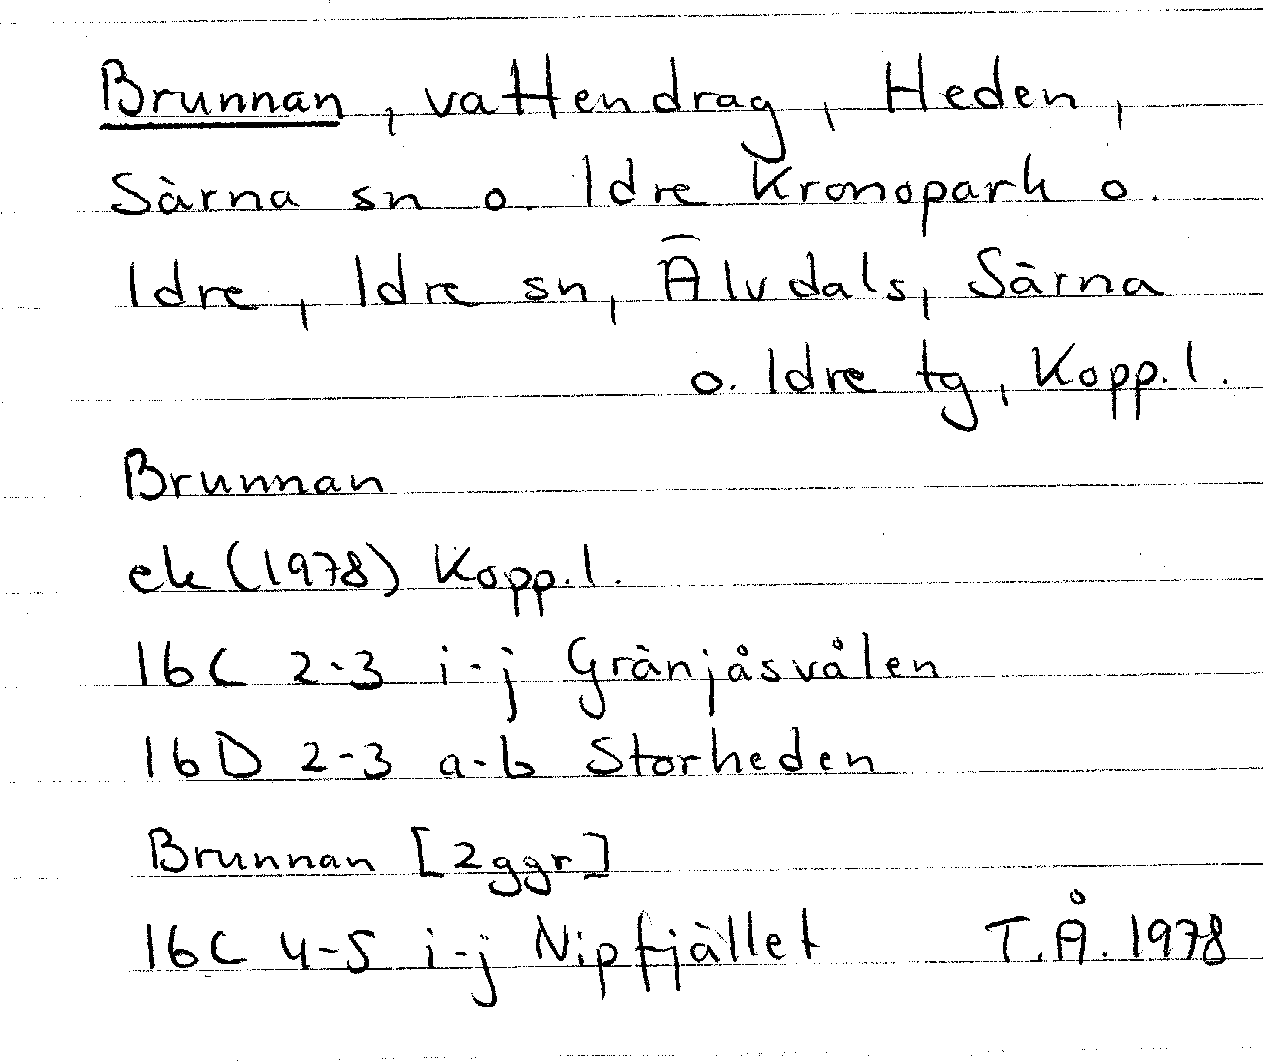 Brunnan, vattendrag, Heden,
Särna sn o. Idre Kronopark o.
Idre, Idre sn, Älvdals, Särna
o. Idre tg, Kopp. l.
Brunnan
ek (1978) Kopp. l.
16C 2-3 i-j Gränjåsvålen
16D 2-3 a-b Storheden
Brunnan [2ggr]
16C 4-5 i-j Nipfjället T.Å. 1978